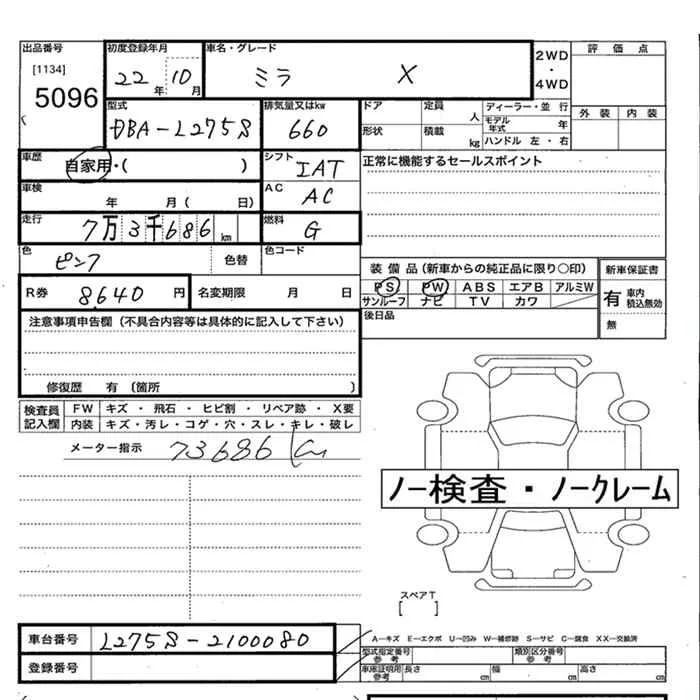 出品番号 初度登録年月 車名・グレード 2WD・4WD 評価点
[1134] 5096 22年 10月 ミラ X 外装 内装
型式 排気量又はkw ドア 定員 人 ディーラー・並行
DBA-L275S 660 形状 積載 kg モデル年式 年
ハンドル 左・右
車歴 自家用・( ) シフト IAT 正常に機能するセールスポイント
車検 年 月( 日) AC AC
走行 7万3千686km 燃料 G
色 ピンク 色替 色コード 装備品(新車からの純正品に限り○印) 新車保証書
R券 8640円 名変期限 月 日 PS PW ABS エアB アルミW 有 車内積込無効
サンルーフ ナビ TV カワ
注意事項申告欄(不具合内容等は具体的に記入して下さい) 後日品 無
修復歴 有(箇所 )
検査員記入欄 FW キズ・飛石・ヒビ割・リペア跡・X要
内装 キズ・汚レ・コゲ・穴・スレ・キレ・破レ
メーター指示 73686 Km
ノー検査・ノークレーム
スペアT
[ ]
車台番号 L275S-2100080 A―キズ E―エクボ U―凹み W―補修跡 S―サビ C―腐食 XX―交換済
登録番号 型式指定番号 参考 類別区分番号 参考
車庫証明用 参考 長さ cm 幅 cm 高さ cm